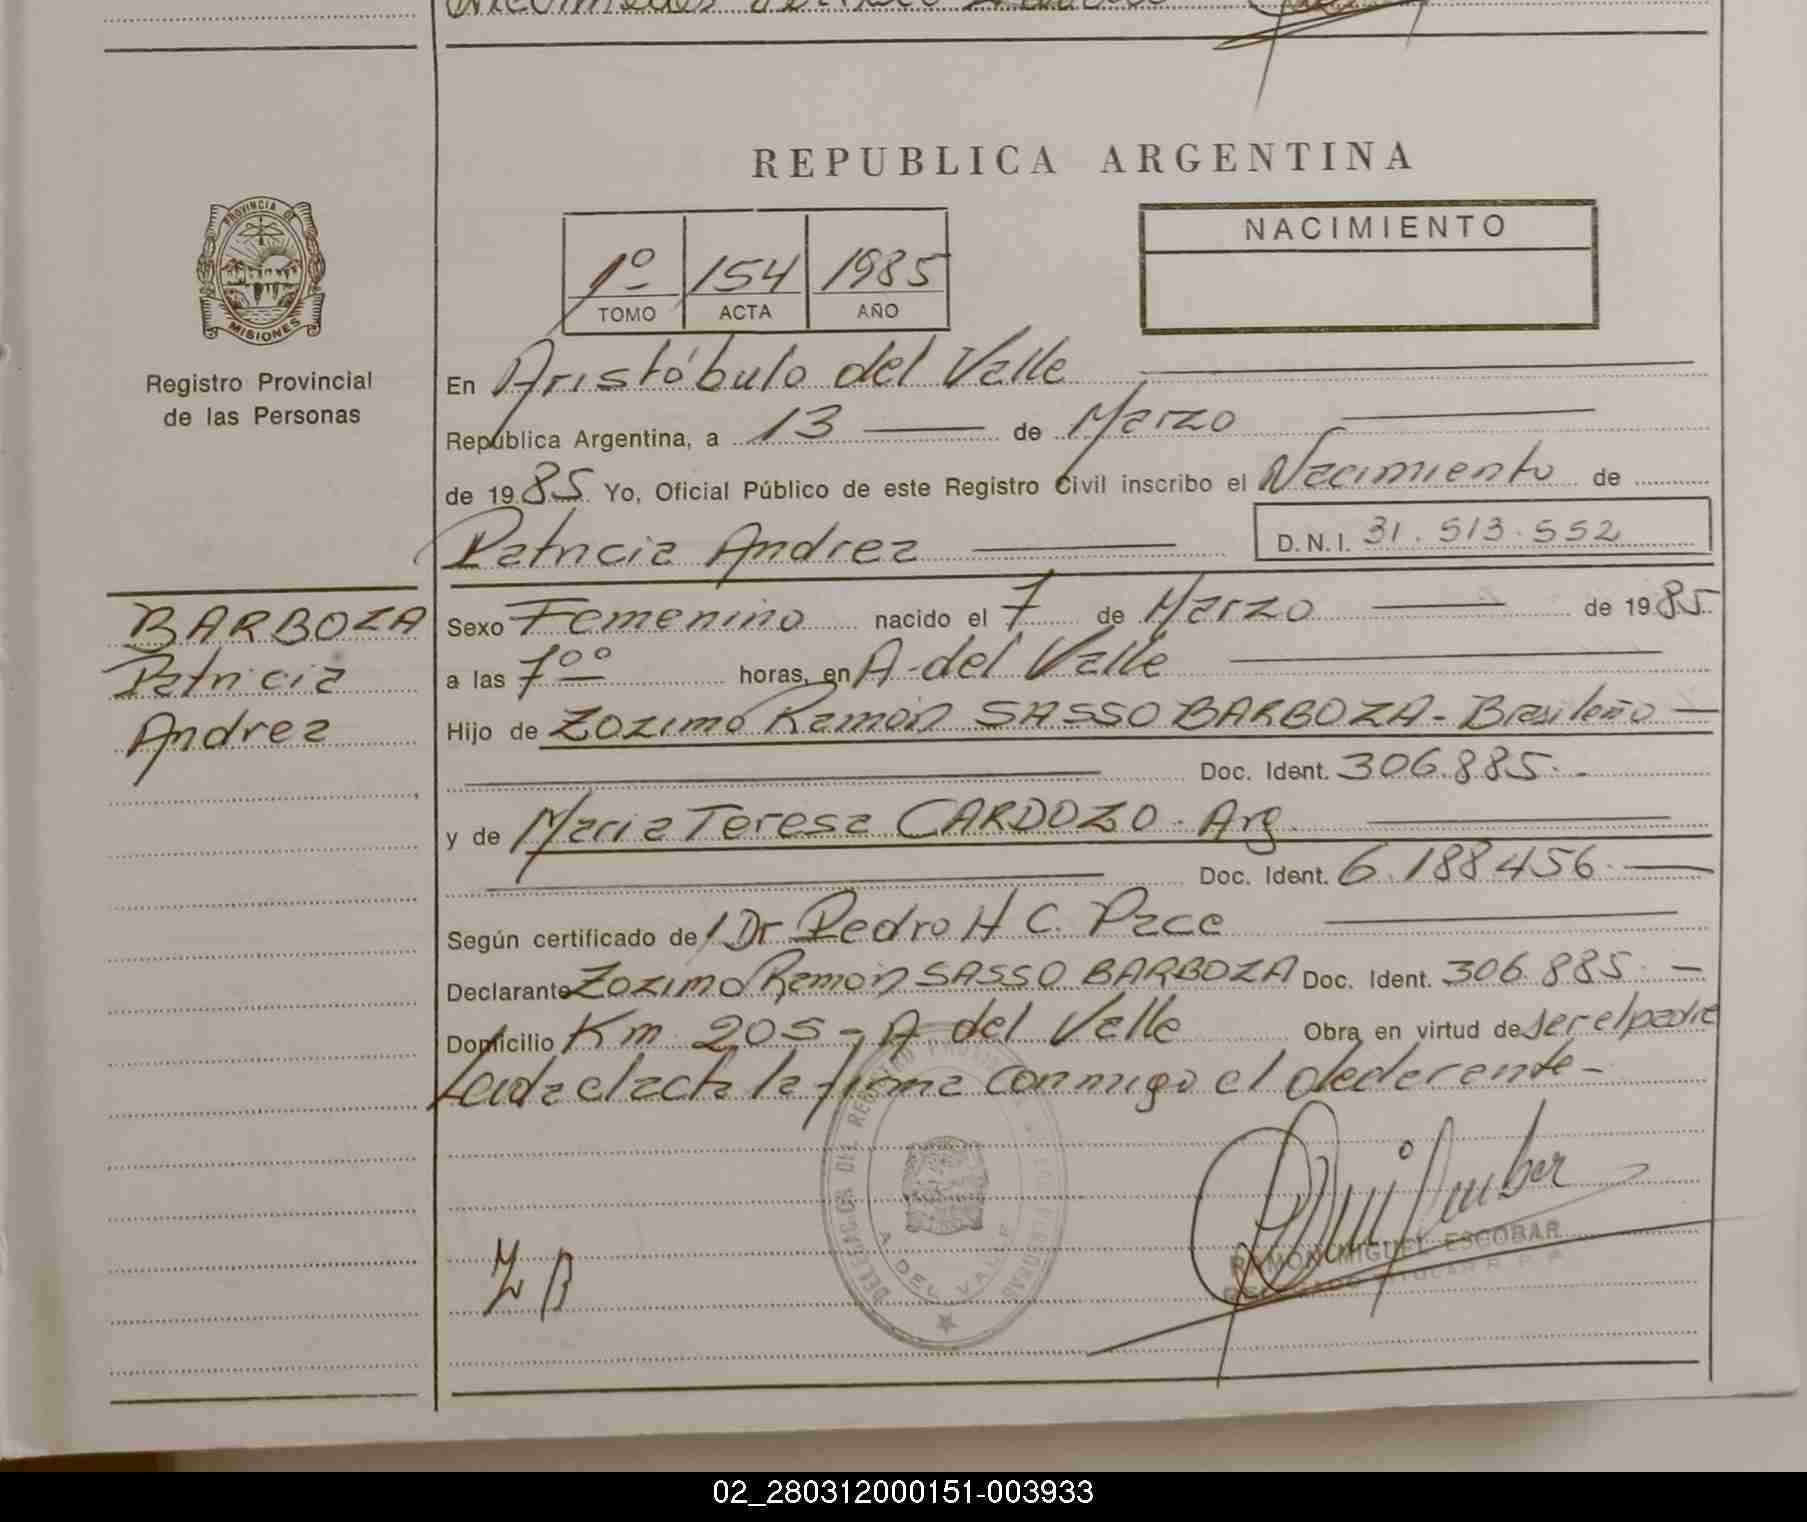 REPUBLICA ARGENTINA
PROVINCIA DE
MISIONES
Registro Provincial
de las Personas
1º 154 1985
TOMO ACTA AÑO
NACIMIENTO
En Aristóbulo del Valle
República Argentina, a 13 de Marzo
de 1985 Yo, Oficial Público de este Registro Civil inscribo el Nacimiento de
Patricia Andrea D.N.I. 31.513.552
BARBOZA
Patricia
Andrea
Sexo Femenino nacido el 7 de Marzo de 1985
a las 7⁰⁰ horas, en A. del Valle
Hijo de Zozimo Ramón SASSO BARBOZA - Brasileño
Doc. Ident. 306.885.
y de Maria Teresa CARDOZO. Arg
Doc. Ident. 6.188456
Según certificado de Dr Pedro H C. Pace
Declarante Zozimo Ramón SASSO BARBOZA Doc. Ident. 306.885
Domicilio Km 205 - A del Valle Obra en virtud de ser el padre
Leida el acta la firma conmigo el declarante -
DELEGACION DEL REGISTRO PROVINCIAL DE LAS PERSONAS
A. DEL VALLE
Z B
RAMON MIGUEL ESCOBAR
02_280312000151-003933